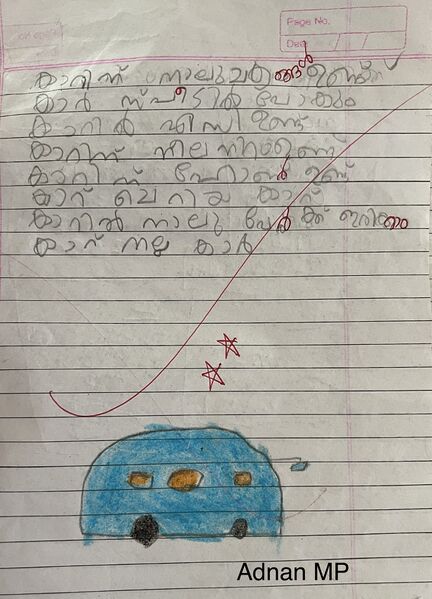 Page No.
Date
കാറിന് നാലുചക്രങ്ങൾ ഉണ്ട്
കാർ സ്പീടിൽ പോകും
കാറിൽ എസി ഉണ്ട്
കാറിന് നീല നിറമുണ്ട്
കാറിന് ഹോൺ ഉണ്ട്
കാറ് ചെറിയ കാറ്
കാറിൽ നാലു പേർക്ക് ഇരിക്കാം
കാറ് നല്ല കാർ
Adnan MP